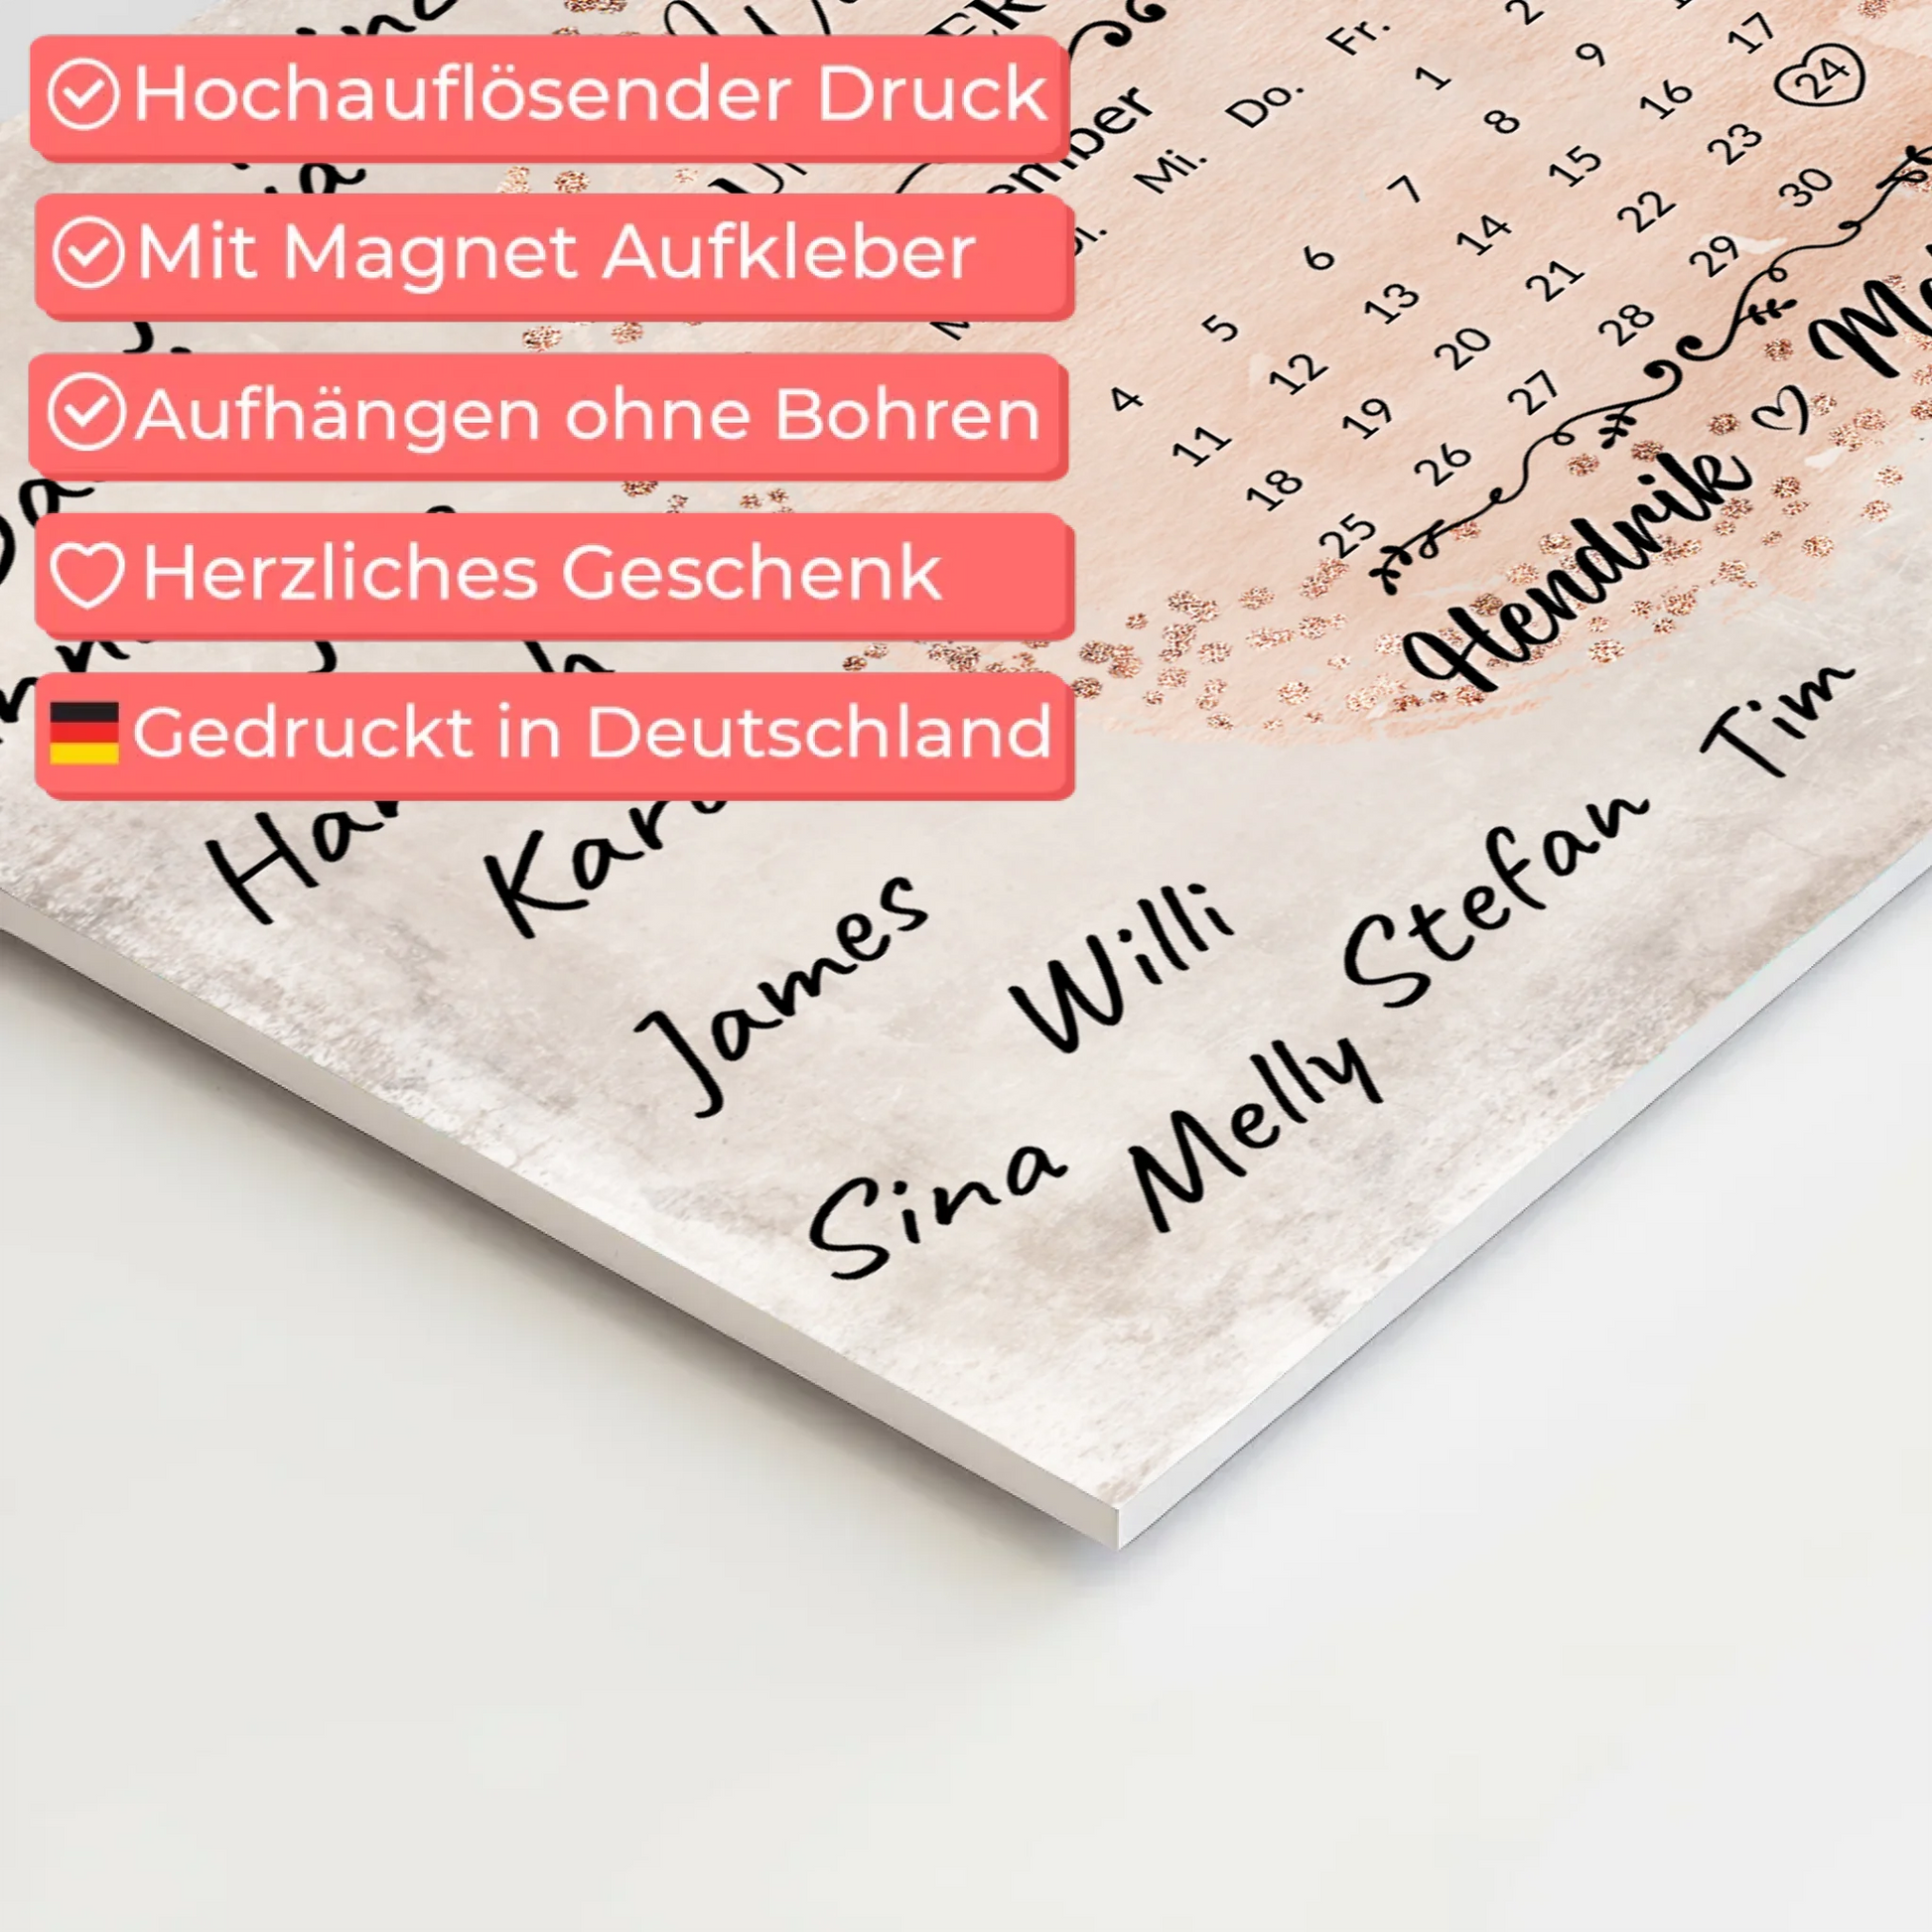 Hochauflösender Druck
Mit Magnet Aufkleber
Aufhängen ohne Bohren
Herzliches Geschenk
Gedruckt in Deutschland
Mi. Do. Fr.
1 2
4 5 6 7 8 9
11 12 13 14 15 16 17
18 19 20 21 22 23 24
25 26 27 28 29 30
Hendrik
James
Willi
Stefan
Tim
Sina
Melly